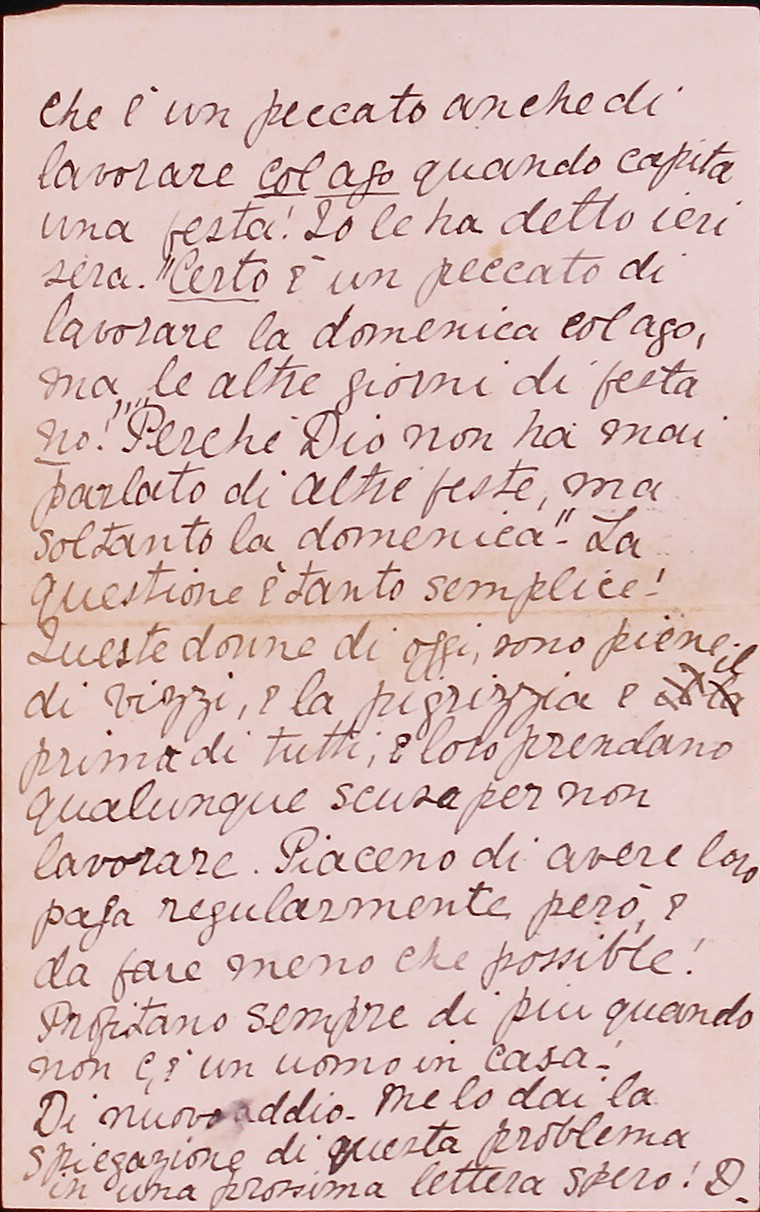 che è un peccato anche di
lavorare col ago quando capita
una festa! Io le ha detto ieri
sera. "Certo è un peccato di
lavorare la domenica col ago,
ma le altre giorni di festa
no!" "Perchè Dio non ha mai
parlato di altre feste, ma
soltanto la domenica" - La
questione è tanto semplice!
Queste donne di oggi, sono piene
di vizzi, e la pigrizzia è il
prima di tutti, e loro prendano
qualunque scusa per non
lavorare. Piaceno di avere loro
paga regularmente però, e
da fare meno che possible!
Profitano sempre di piu quando
non c,è un uomo in casa!
Di nuovo addio - Me lo dai la
spiegazione di questa problema
in una prossima lettera spero! D.